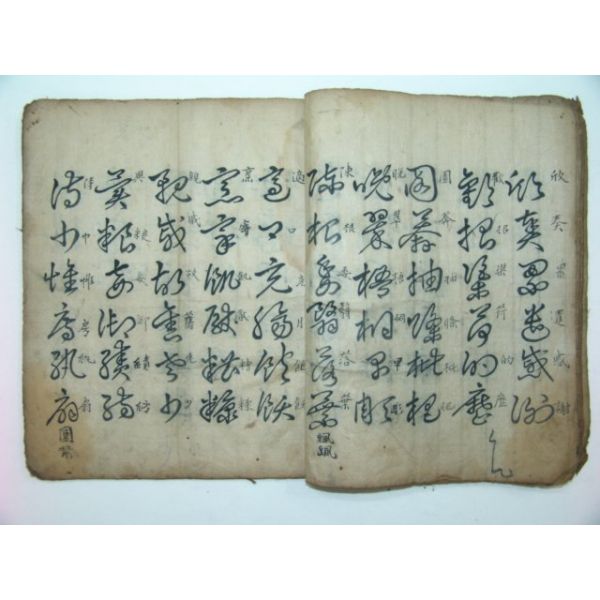 欣奏累遣慼謝
歡招渠荷的歷
園莽抽條枇杷
晩翠梧桐早凋
陳根委翳落葉飄颻
適口充腸飽飫
烹宰飢厭糟糠
親戚故舊老少
異糧妾御績紡
侍巾帷房紈扇圓潔